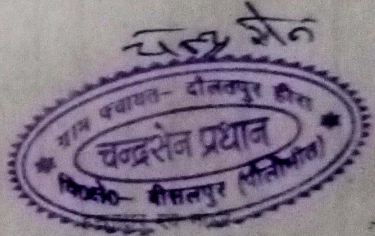 चन्द्र सेन
ग्राम पंचायत- दौलतपुर हीरा
चन्द्रसेन प्रधान
वि०क्षे०- बीसलपुर (पीलीभीत)